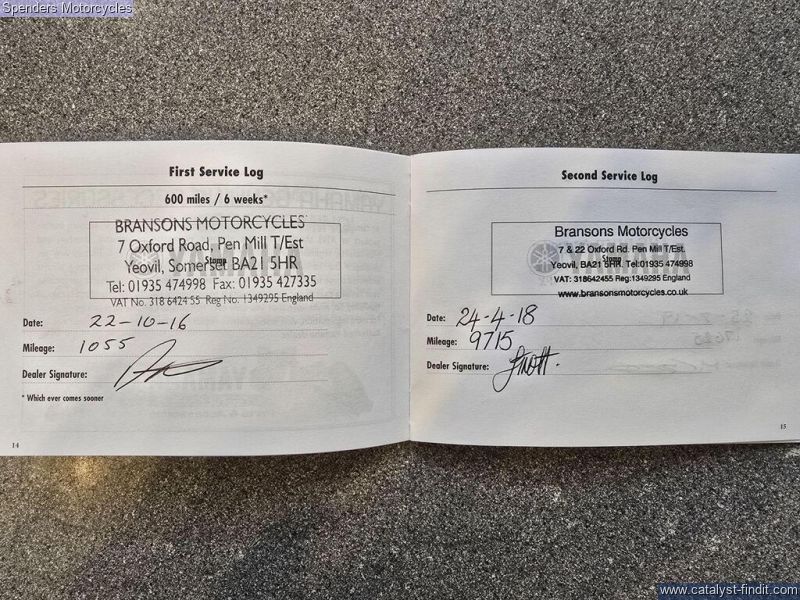 Spenders Motorcycles
First Service Log
600 miles / 6 weeks*
BRANSONS MOTORCYCLES
7 Oxford Road, Pen Mill T/Est
Stamp
Yeovil, Somerset BA21 5HR
Tel: 01935 474998 Fax: 01935 427335
VAT No. 318 6424 55 Reg No. 1349295 England
Date: 22-10-16
Mileage: 1055
Dealer Signature:
* Which ever comes sooner
14
Second Service Log
Bransons Motorcycles
7 & 22 Oxford Rd. Pen Mill T/Est.
Stamp
Yeovil, BA21 5HR. Tel:01935 474998
VAT: 318642455 Reg:1349295 England
www.bransonsmotorcycles.co.uk
Date: 24-4-18
Mileage: 9715
Dealer Signature:
15
www.catalyst-findit.com